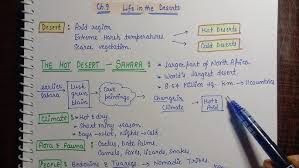 Ch.9 Life in the Deserts
Desert: Arid region
Extreme harsh temperatures
Scarce vegetation
Hot Deserts
Cold Deserts
THE HOT DESERT - SAHARA
Large part of North Africa
World's largest desert.
8.54 million sq. km → 11 countries
earlier, Sahara
Lush green plain
Cave paintings
Change in Climate
Hot & Arid
Climate → Hot & dry.
Short rainy season.
Days → Hot, Nights → Cold.
Flora & Fauna → Cactus, Date Palms
Camels, Foxes, Lizards, Snakes
People → Bedouins & Tuaregs → Nomadic Tribes